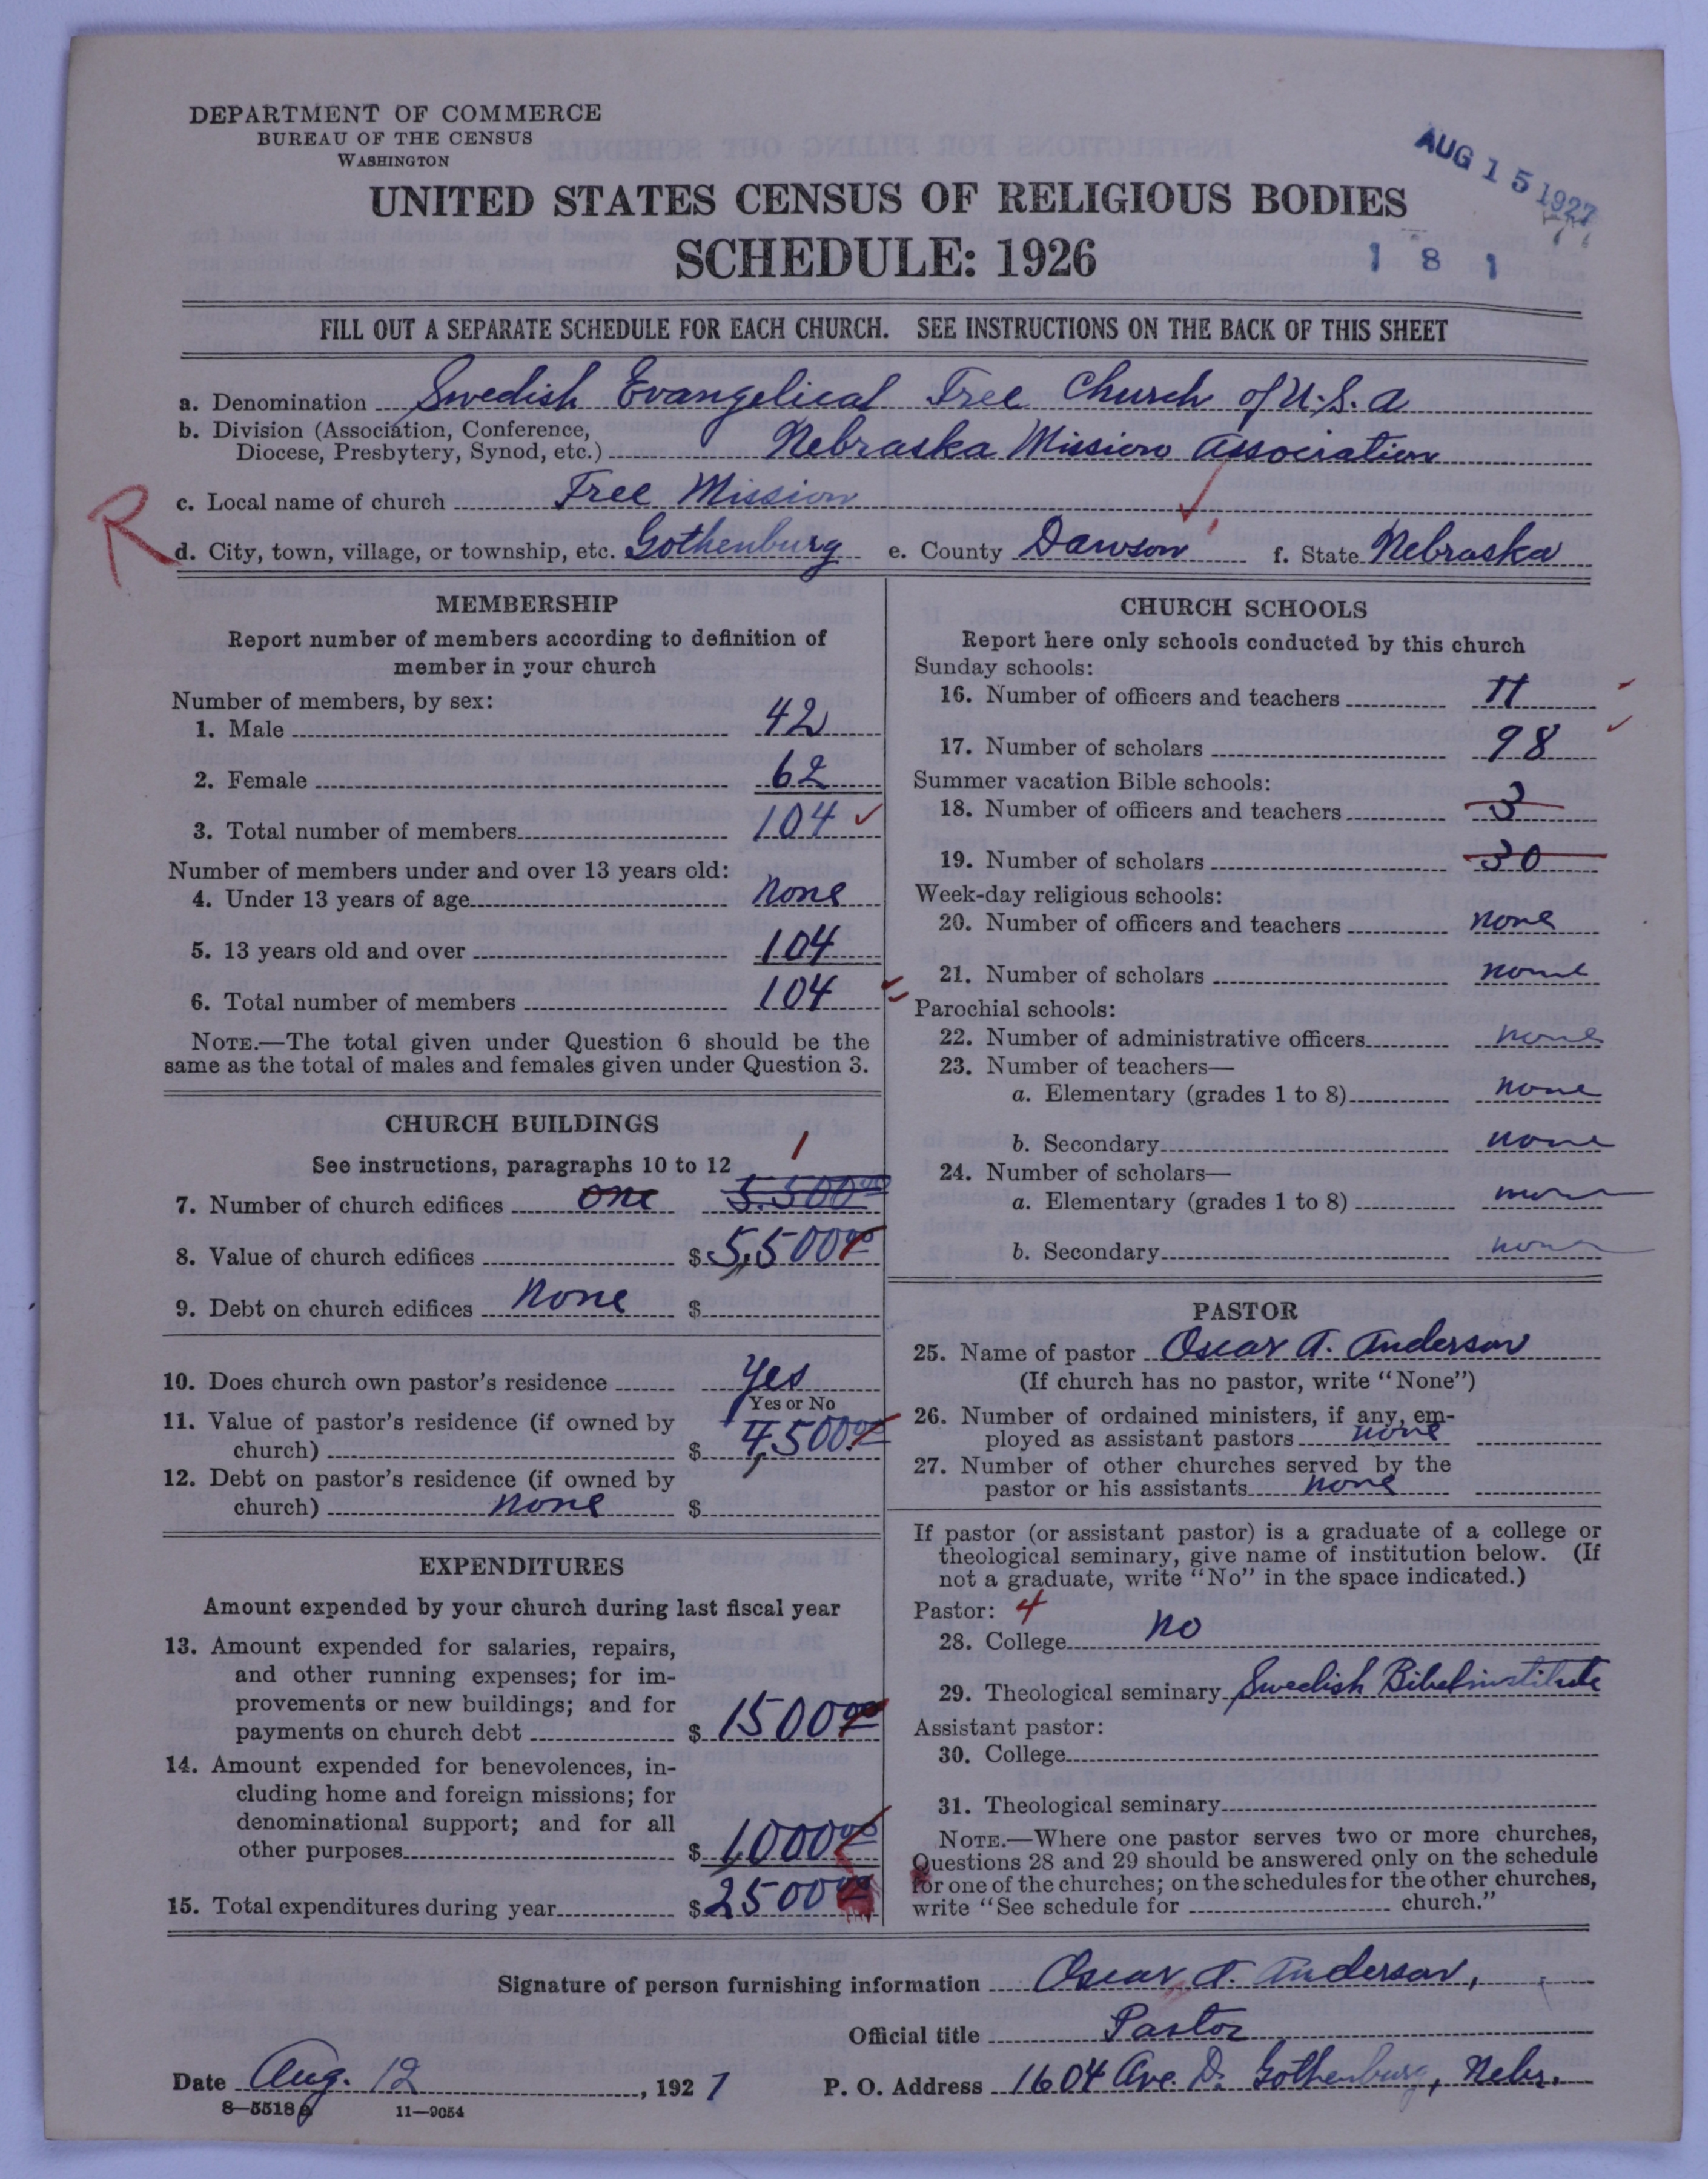 DEPARTMENT OF COMMERCE
BUREAU OF THE CENSUS
WASHINGTON
AUG 15 1927
UNITED STATES CENSUS OF RELIGIOUS BODIES
SCHEDULE: 1926
1 8 1
FILL OUT A SEPARATE SCHEDULE FOR EACH CHURCH. SEE INSTRUCTIONS ON THE BACK OF THIS SHEET
a. Denomination Swedish Evangelical Free Church of U.S.A
b. Division (Association, Conference,
Diocese, Presbytery, Synod, etc.) Nebraska Mission Association
c. Local name of church Free Mission
R
d. City, town, village, or township, etc. Gothenburg e. County Dawson f. State Nebraska
MEMBERSHIP
Report number of members according to definition of
member in your church
Number of members, by sex:
1. Male 42
2. Female 62
3. Total number of members 104
Number of members under and over 13 years old:
4. Under 13 years of age None
5. 13 years old and over 104
6. Total number of members 104
NOTE.—The total given under Question 6 should be the
same as the total of males and females given under Question 3.
CHURCH BUILDINGS
See instructions, paragraphs 10 to 12
1
7. Number of church edifices one 5.500 00
8. Value of church edifices $ 5,500 00
9. Debt on church edifices None $
10. Does church own pastor's residence Yes
Yes or No
11. Value of pastor's residence (if owned by
church) $ 4,500 00
12. Debt on pastor's residence (if owned by
church) none $
EXPENDITURES
Amount expended by your church during last fiscal year
13. Amount expended for salaries, repairs,
and other running expenses; for im-
provements or new buildings; and for
payments on church debt $ 1500 00
14. Amount expended for benevolences, in-
cluding home and foreign missions; for
denominational support; and for all
other purposes $ 1,000 00
15. Total expenditures during year $ 2500
CHURCH SCHOOLS
Report here only schools conducted by this church
Sunday schools:
16. Number of officers and teachers 11
17. Number of scholars 98
Summer vacation Bible schools:
18. Number of officers and teachers 3
19. Number of scholars 30
Week-day religious schools:
20. Number of officers and teachers none
21. Number of scholars none
Parochial schools:
22. Number of administrative officers none
23. Number of teachers—
a. Elementary (grades 1 to 8) none
b. Secondary none
24. Number of scholars—
a. Elementary (grades 1 to 8) none
b. Secondary none
PASTOR
25. Name of pastor Oscar A. Anderson
(If church has no pastor, write "None")
26. Number of ordained ministers, if any, em-
ployed as assistant pastors none
27. Number of other churches served by the
pastor or his assistants none
If pastor (or assistant pastor) is a graduate of a college or
theological seminary, give name of institution below. (If
not a graduate, write "No" in the space indicated.)
Pastor: 4
28. College No
29. Theological seminary Swedish Bibelinstitute
Assistant pastor:
30. College
31. Theological seminary
NOTE.—Where one pastor serves two or more churches,
Questions 28 and 29 should be answered only on the schedule
for one of the churches; on the schedules for the other churches,
write "See schedule for church."
Signature of person furnishing information Oscar A. Anderson,
Official title Pastor
Date Aug. 12, 1927 P. O. Address 1604 Ave. D. Gothenburg, Nebr.
8—5518 11—9054